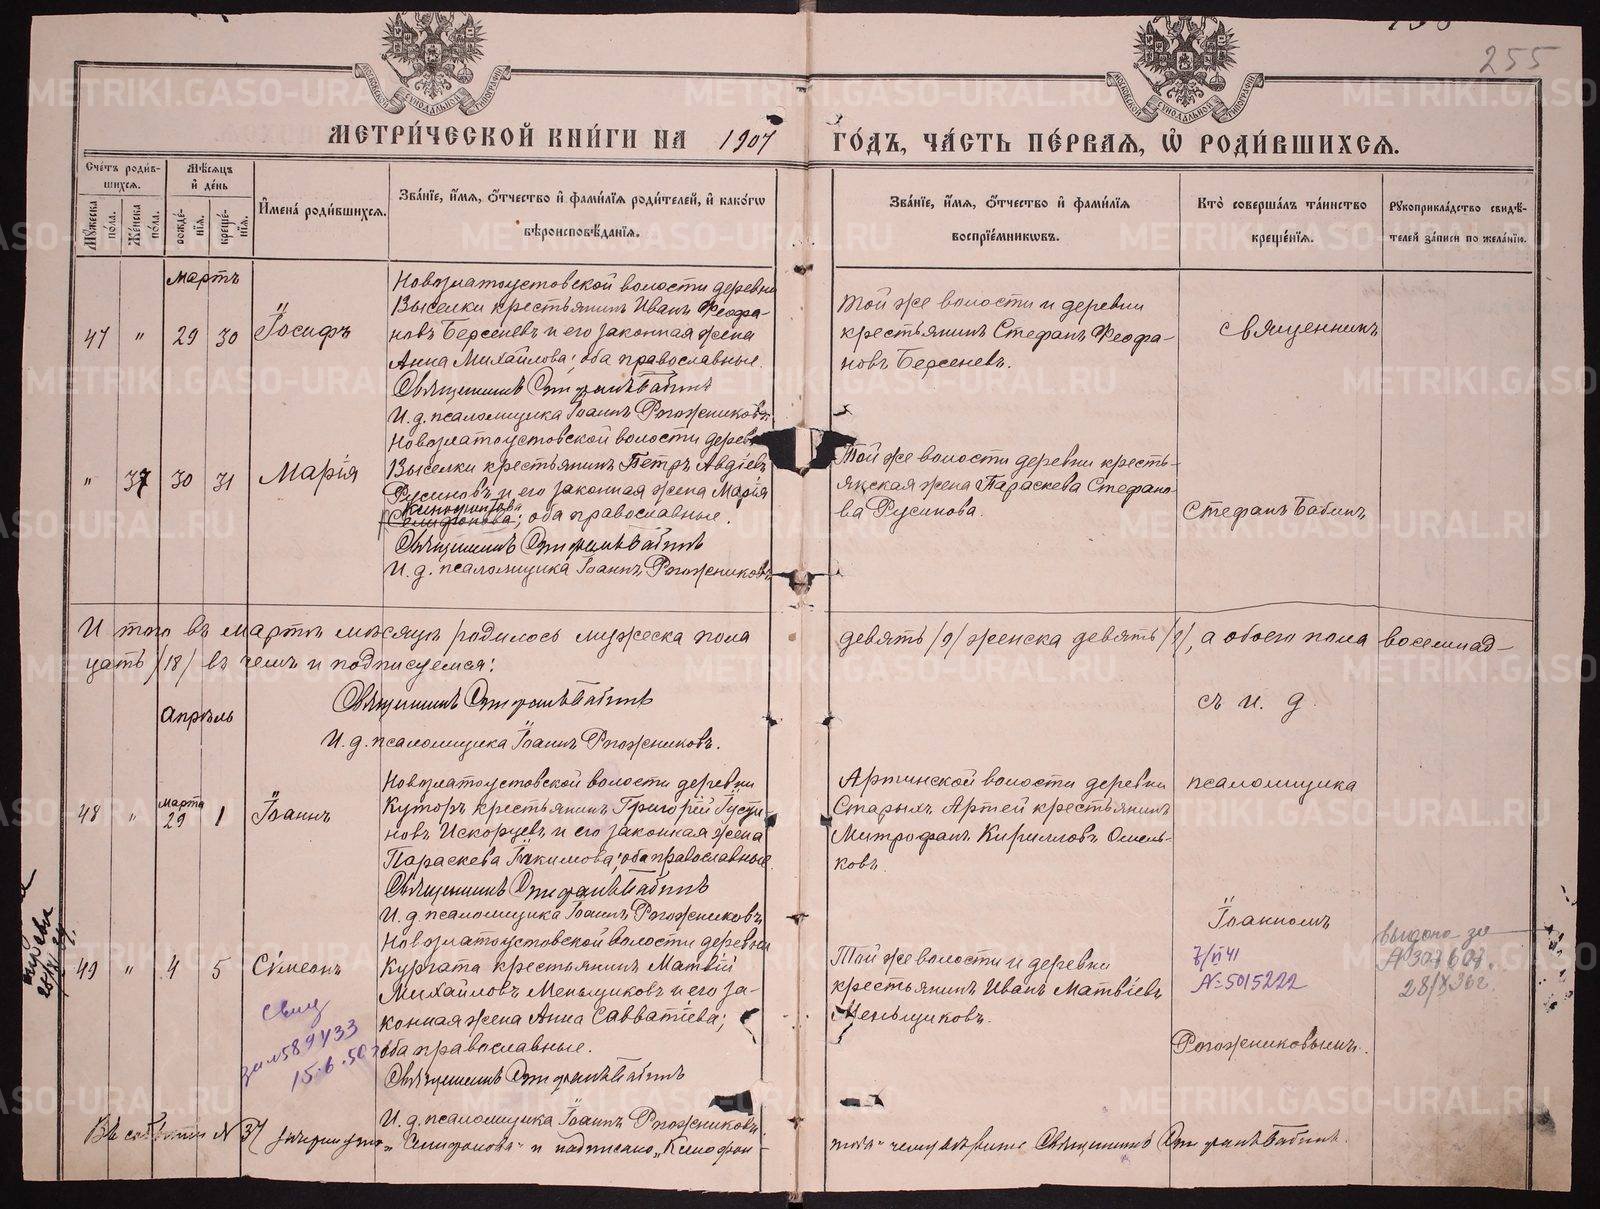 255
МЕТРИ́ЧЕСКОЙ КНИ́ГИ НА 1907 ГО́ДЪ, ЧА́СТЬ ПЕ́РВАЯ, Ѡ҆ РОДИ́ВШИХСЯ.
Сче́тъ роди́в-
шихся.
Мѣ́сяцъ
и҆ де́нь
Мꙋ́жеска по́ла.
Же́нска по́ла.
рожде́-
нїя.
креще́-
нїя.
И҆мена́ роди́вшихся.
Зва́нїе, и҆́мя, ѻ҆́тчество и҆ фами́лїя роди́телей, и҆ како́гѡ
вѣроисповѣ́данїя.
Зва́нїе, и҆́мя, ѻ҆́тчество и҆ фами́лїя
воспрїе́мникѡвъ.
Кто̀ соверша́лъ та́инство
креще́нїя.
Рꙋкоприкла́дство свидѣ́-
телей за́писи по жела́нїю.
Мартъ
47 " 29 30 Іосифъ
Новозлатоустовской волости деревни
Выселки крестьянинъ Иванъ Ѳеофа-
новъ Берсеневъ и его законная жена
Анна Михайлова; оба православные.
Священникъ Стефанъ Бабинъ
И. д. псаломщика Іоаннъ Рогожниковъ.
Той же волости и деревни
крестьянинъ Стефанъ Ѳеофа-
новъ Берсеневъ.
священникъ
" 37 30 31 Марія
Новозлатоустовской волости деревни
Выселки крестьянинъ Петръ Авдіевъ
Русиновъ и его законная жена Марія
Кинофонтова
Селифонова; оба православные.
Священникъ Стефанъ Бабинъ
И. д. псаломщика Іоаннъ Рогожниковъ
Той же волости деревни кресть-
янская жена Параскева Стефано-
ва Русинова.
Стефанъ Бабинъ
Итого въ мартѣ мѣсяцѣ родилось мужеска пола девять /9/ женска девять /9/, а обоего пола восемнад-
цать /18/ въ чемъ и подписуемся:
Священникъ Стефанъ Бабинъ
съ и. д.
Апрѣль
И. д. псаломщика Іоаннъ Рогожниковъ.
48 " Марта 29 1 Іоаннъ
Новозлатоустовской волости деревни
Куторъ крестьянинъ Григорій Іусти-
новъ Искорцевъ и его законная жена
Параскева Іакимова; оба православные
Священникъ Стефанъ Бабинъ
И. д. псаломщика Іоаннъ Рогожниковъ
Артинской волости деревни
Старыхъ Артей крестьянинъ
Митрофанъ Кирилловъ Омель-
ковъ.
псаломщика
Іоанномъ
49 " 4 5 Сѵмеонъ
Новозлатоустовской волости деревни
Кургата крестьянинъ Матвій
Михайловъ Меньщиковъ и его за-
конная жена Анна Савватіева;
оба православные.
Священникъ Стефанъ Бабинъ
И. д. псаломщика Іоаннъ Рогожниковъ.
Той же волости и деревни
крестьянинъ Иванъ Матвіевъ
Меньщиковъ.
№ 5015222
Рогожниковымъ.
выдано за
№ 307607.
№ 589433
15.6.50
Въ событіи № 37 зачеркнуто „Селифонова" и надписано „Кинофон-
това" чему вѣрить Священникъ Стефанъ Бабинъ.
METRIKI.GASO-URAL.RU